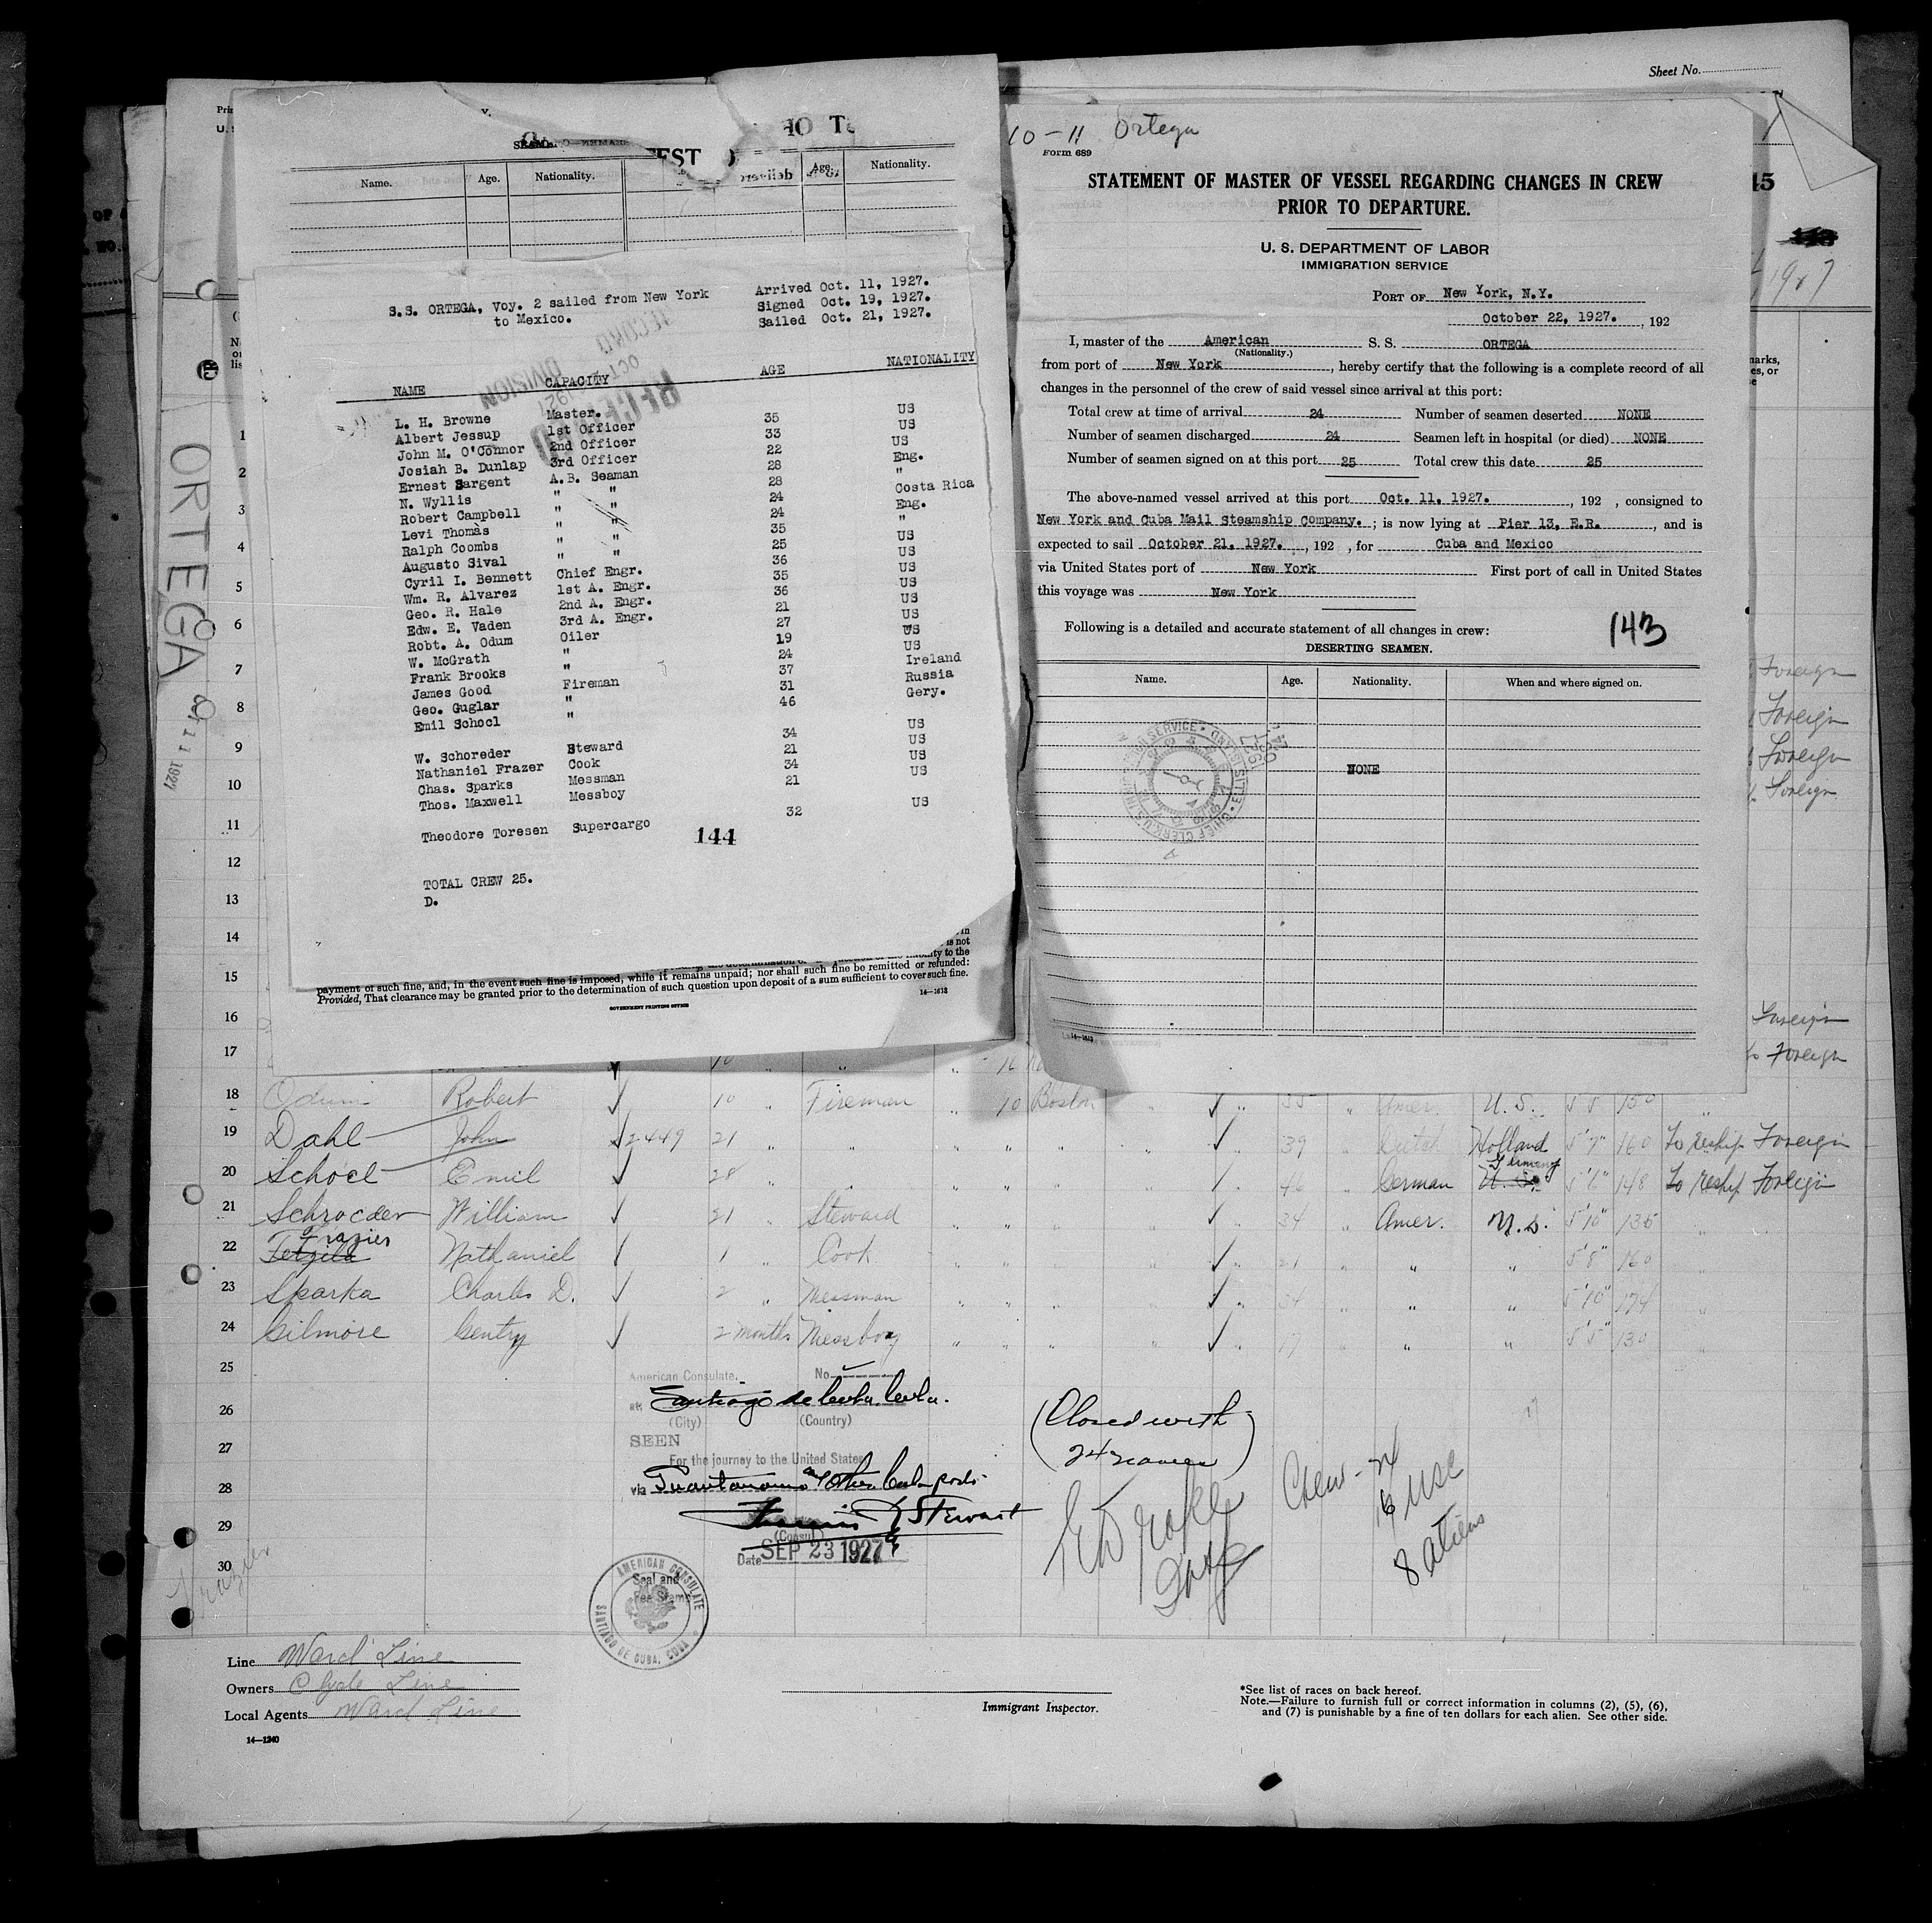 Sheet No.
Name.	Age.	Nationality.	Age.	Nationality.
S.S. ORTEGA, Voy. 2 sailed from New York
to Mexico.
Arrived Oct. 11, 1927.
Signed Oct. 19, 1927.
Sailed Oct. 21, 1927.
NAME	CAPACITY	AGE	NATIONALITY
L. H. Browne	Master.	35	US
Albert Jessup	1st Officer	33	US
John M. O'Connor	2nd Officer	22	US
Josiah B. Dunlap	3rd Officer	28	Eng.
Ernest Sargent	A.B. Seaman	28	"
N. Wyllis	"	"	24	Costa Rica
Robert Campbell	"	"	24	Eng.
Levi Thomas	"	"	35	"
Ralph Coombs	"	"	25	US
Augusto Sival	"	"	36	US
Cyril I. Bennett	Chief Engr.	35	US
Wm. R. Alvarez	1st A. Engr.	36	US
Geo. R. Hale	2nd A. Engr.	21	US
Edw. E. Vaden	3rd A. Engr.	27	US
Robt. A. Odum	Oiler	19	US
W. McGrath	"	24	US
Frank Brooks	"	37	Ireland
James Good	Fireman	31	Russia
Geo. Guglar	"	46	Gery.
Emil Schocl	"
W. Schoreder	Steward	34	US
Nathaniel Frazer	Cook	21	US
Chas. Sparks	Messman	34	US
Thos. Maxwell	Messboy	21	US
Theodore Toresen	Supercargo	32	US
144
TOTAL CREW 25.
D.
payment of such fine, and, in the event such fine is imposed, while it remains unpaid; nor shall such fine be remitted or refunded:
Provided, That clearance may be granted prior to the determination of such question upon deposit of a sum sufficient to cover such fine.
GOVERNMENT PRINTING OFFICE
10-11 Ortega
Form 689
STATEMENT OF MASTER OF VESSEL REGARDING CHANGES IN CREW
PRIOR TO DEPARTURE.
U. S. DEPARTMENT OF LABOR
IMMIGRATION SERVICE
PORT OF New York, N.Y.
October 22, 1927. , 192
I, master of the American S. S. ORTEGA
(Nationality.)
from port of New York , hereby certify that the following is a complete record of all
changes in the personnel of the crew of said vessel since arrival at this port:
Total crew at time of arrival 24 Number of seamen deserted NONE
Number of seamen discharged 24 Seamen left in hospital (or died) NONE
Number of seamen signed on at this port 25 Total crew this date 25
The above-named vessel arrived at this port Oct. 11. 1927. , 192 , consigned to
New York and Cuba Mail Steamship Company. ; is now lying at Pier 13, E.R. , and is
expected to sail October 21, 1927. , 192 , for Cuba and Mexico
via United States port of New York First port of call in United States
this voyage was New York
Following is a detailed and accurate statement of all changes in crew:
143
DESERTING SEAMEN.
Name.	Age.	Nationality.	When and where signed on.
NONE
ORTEGA
18 Odum Robert 10 " Fireman " 10 Boston Amer. U.S. 5'5 150
19 Dahl John 2449 21 39 Dutch Holland 5'7" 160 To reship Foreign
20 Schocl Emil 28 46 German Germany 5'6" 148 To reship Foreign
21 Schrocder William 21 Steward 34 Amer. U.S. 5'10" 135
22 Frazier Nathaniel 1 Cook 21 " " 5'8" 160
23 Sparka Charles D. 2 Messman 34 " " 5'10" 174
24 Gilmore Gentry 2 months Messboy 17 " " 5'5" 130
25
26
27
28
29
30
American Consulate. No
at Santiago de Cuba, Cuba.
(City) (Country)
SEEN
For the journey to the United States
via Guantanamo & other Cuban ports
Stewart
(Consul)
Date SEP 23 1927
AMERICAN CONSULATE
SANTIAGO DE CUBA, CUBA
Seal and
Fee Stamp
(Closed with
24 names)
Crew - 24
16 USC
8 aliens
Line Ward Line
Owners Clyde Line
Local Agents Ward Line
14—1240
Immigrant Inspector.
*See list of races on back hereof.
Note.—Failure to furnish full or correct information in columns (2), (5), (6),
and (7) is punishable by a fine of ten dollars for each alien. See other side.